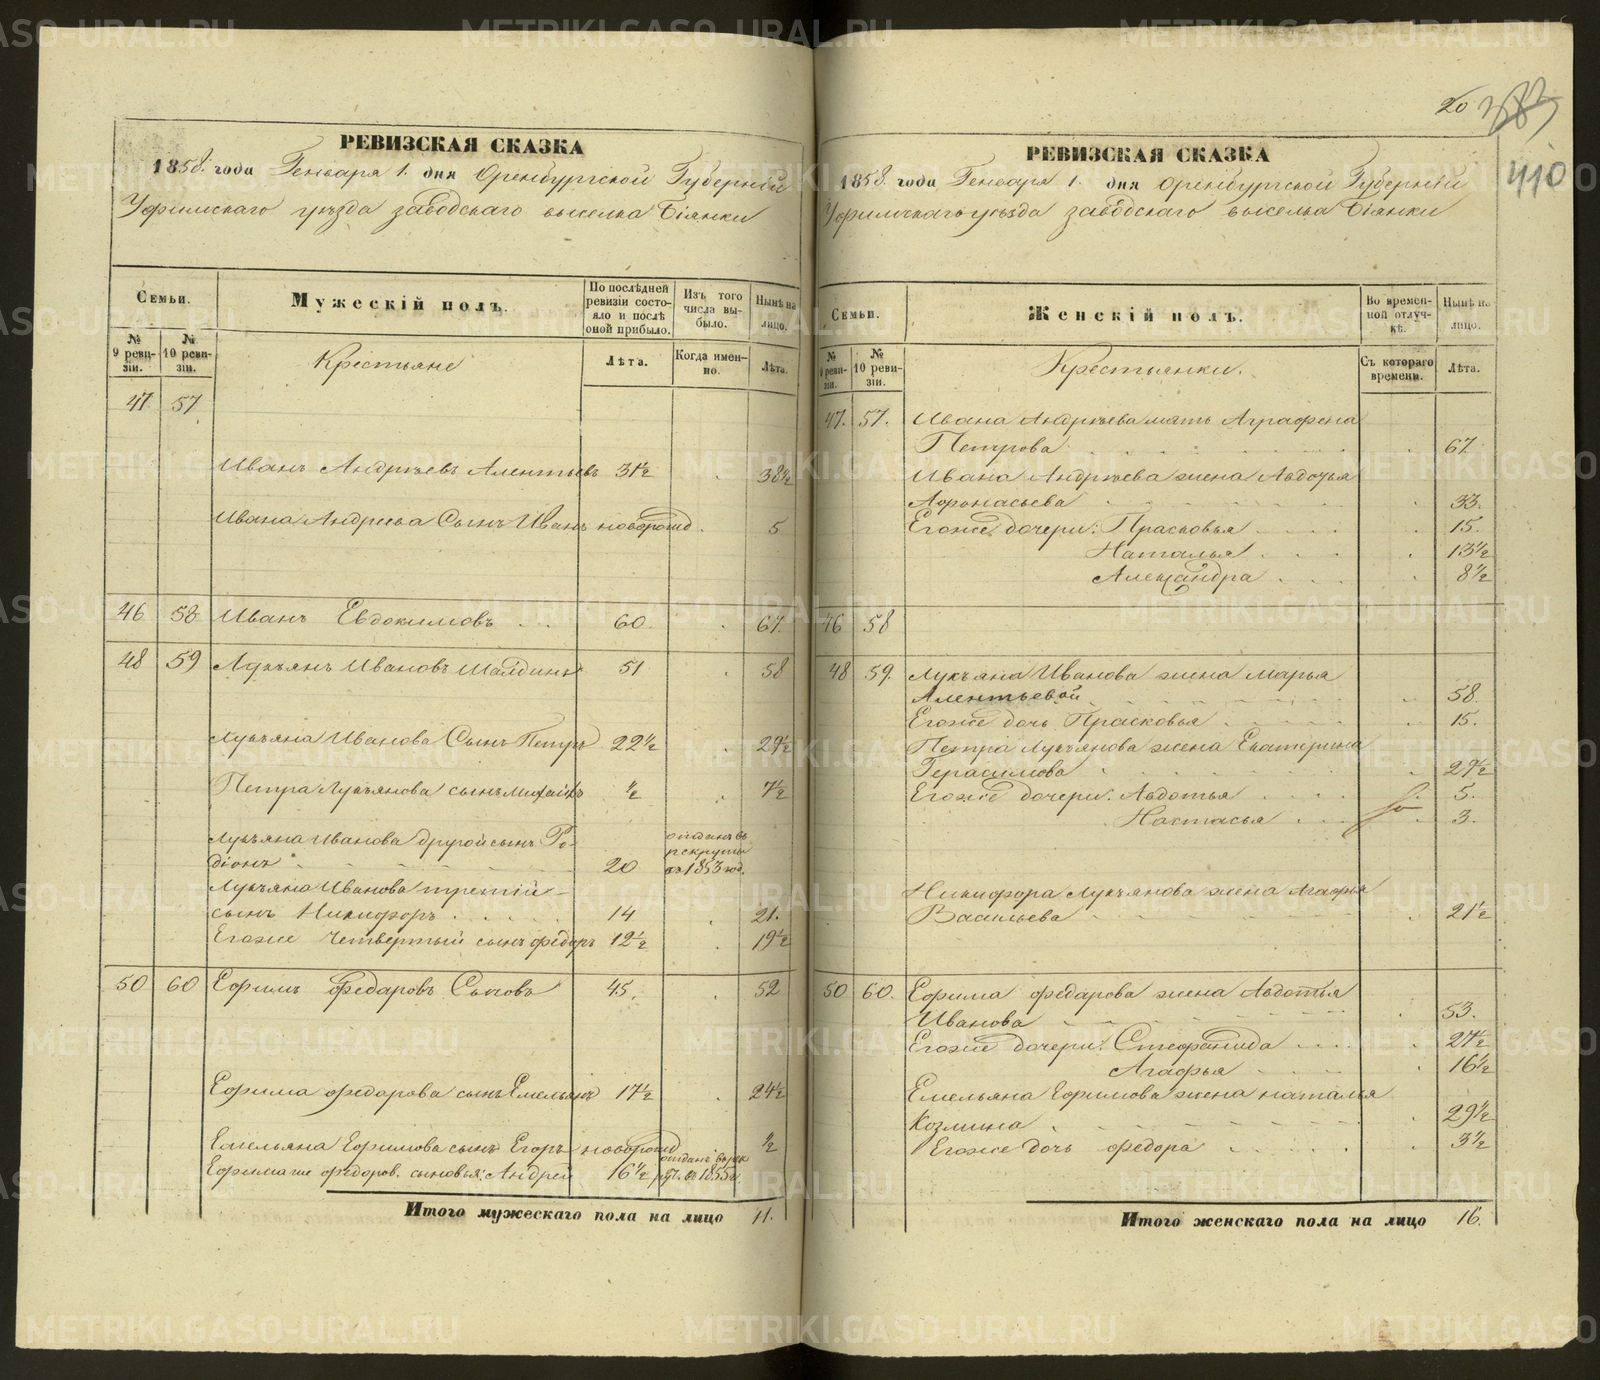 20 383
410
РЕВИЗСКАЯ СКАЗКА
1858. года Генваря 1. дня Оренбургской Губерніи
Уфимскаго уѣзда заводскаго выселка Біянки
Семьи.
Мужескій полъ.
По послѣдней ревизіи состояло и послѣ оной прибыло.
Изъ того числа выбыло.
Нынѣ на лицо.
№ 9 ревизіи.
№ 10 ревизіи.
Крестьяне
Лѣта.
Когда именно.
Лѣта.
47 57
Иванъ Андреевъ Алентьевъ 31½ 38½
Ивана Андреева Сынъ Иванъ новорожд. 5
46 58 Иванъ Евдокимовъ 60. 67.
48 59 Лукъянъ Ивановъ Шалдинъ 51 58
Лукъяна Иванова Сынъ Петръ 22½ 29½
Петра Лукъянова сынъ Михайлъ ½ 7½
Лукъяна Иванова другой сынъ Ро-
діонъ 20 отданъ въ рекруты въ 1853 год.
Лукъяна Иванова третій
сынъ Никифоръ 14 21.
Егоже четвертый сынъ Федоръ 12½ 19½
50 60 Ефимъ Федаровъ Сычовъ 45. 52
Ефима Федарова сынъ Емельянъ 17½ 24½
Емельяна Ефимова сынъ Егоръ новорожд ½
Ефима же Федоров. сыновья: Андрей 16½ отданъ в рекрут. въ 1855 г.
Итого мужескаго пола на лицо 11.
РЕВИЗСКАЯ СКАЗКА
1858. года Генваря 1. дня Оренбургской Губерніи
Уфимскаго уѣзда заводскаго выселка Біянки
Семьи.
Женскій полъ.
Во временной отлучкѣ.
Нынѣ на лицо.
№ 9 ревизіи.
№ 10 ревизіи.
Крестьянки.
Съ котораго времени.
Лѣта.
47. 57. Ивана Андреева мать Аграфена
Петрова 67
Ивана Андреева жена Авдотья
Афонасьева 33.
Егоже дочери: Прасковья 15.
Наталья 13½
Александра 8½
46 58
48 59. Лукъяна Иванова жена Марья
Алентьевой 58.
Егоже дочь Прасковья 15.
Петра Лукъянова жена Екатерина
Герасимова 27½
Егоже дочери: Авдотья 5.
Настасья 3.
Никифора Лукъянова жена Агафья
Васильева 21½
50 60. Ефима Федарова жена Авдотья
Иванова 53.
Егоже дочери: Стефанида 27½
Агафья 16½
Емельяна Ефимова жена Наталья
Козмина 29½
Егоже дочь Федора 3½
Итого женскаго пола на лицо 16.
METRIKI.GASO-URAL.RU